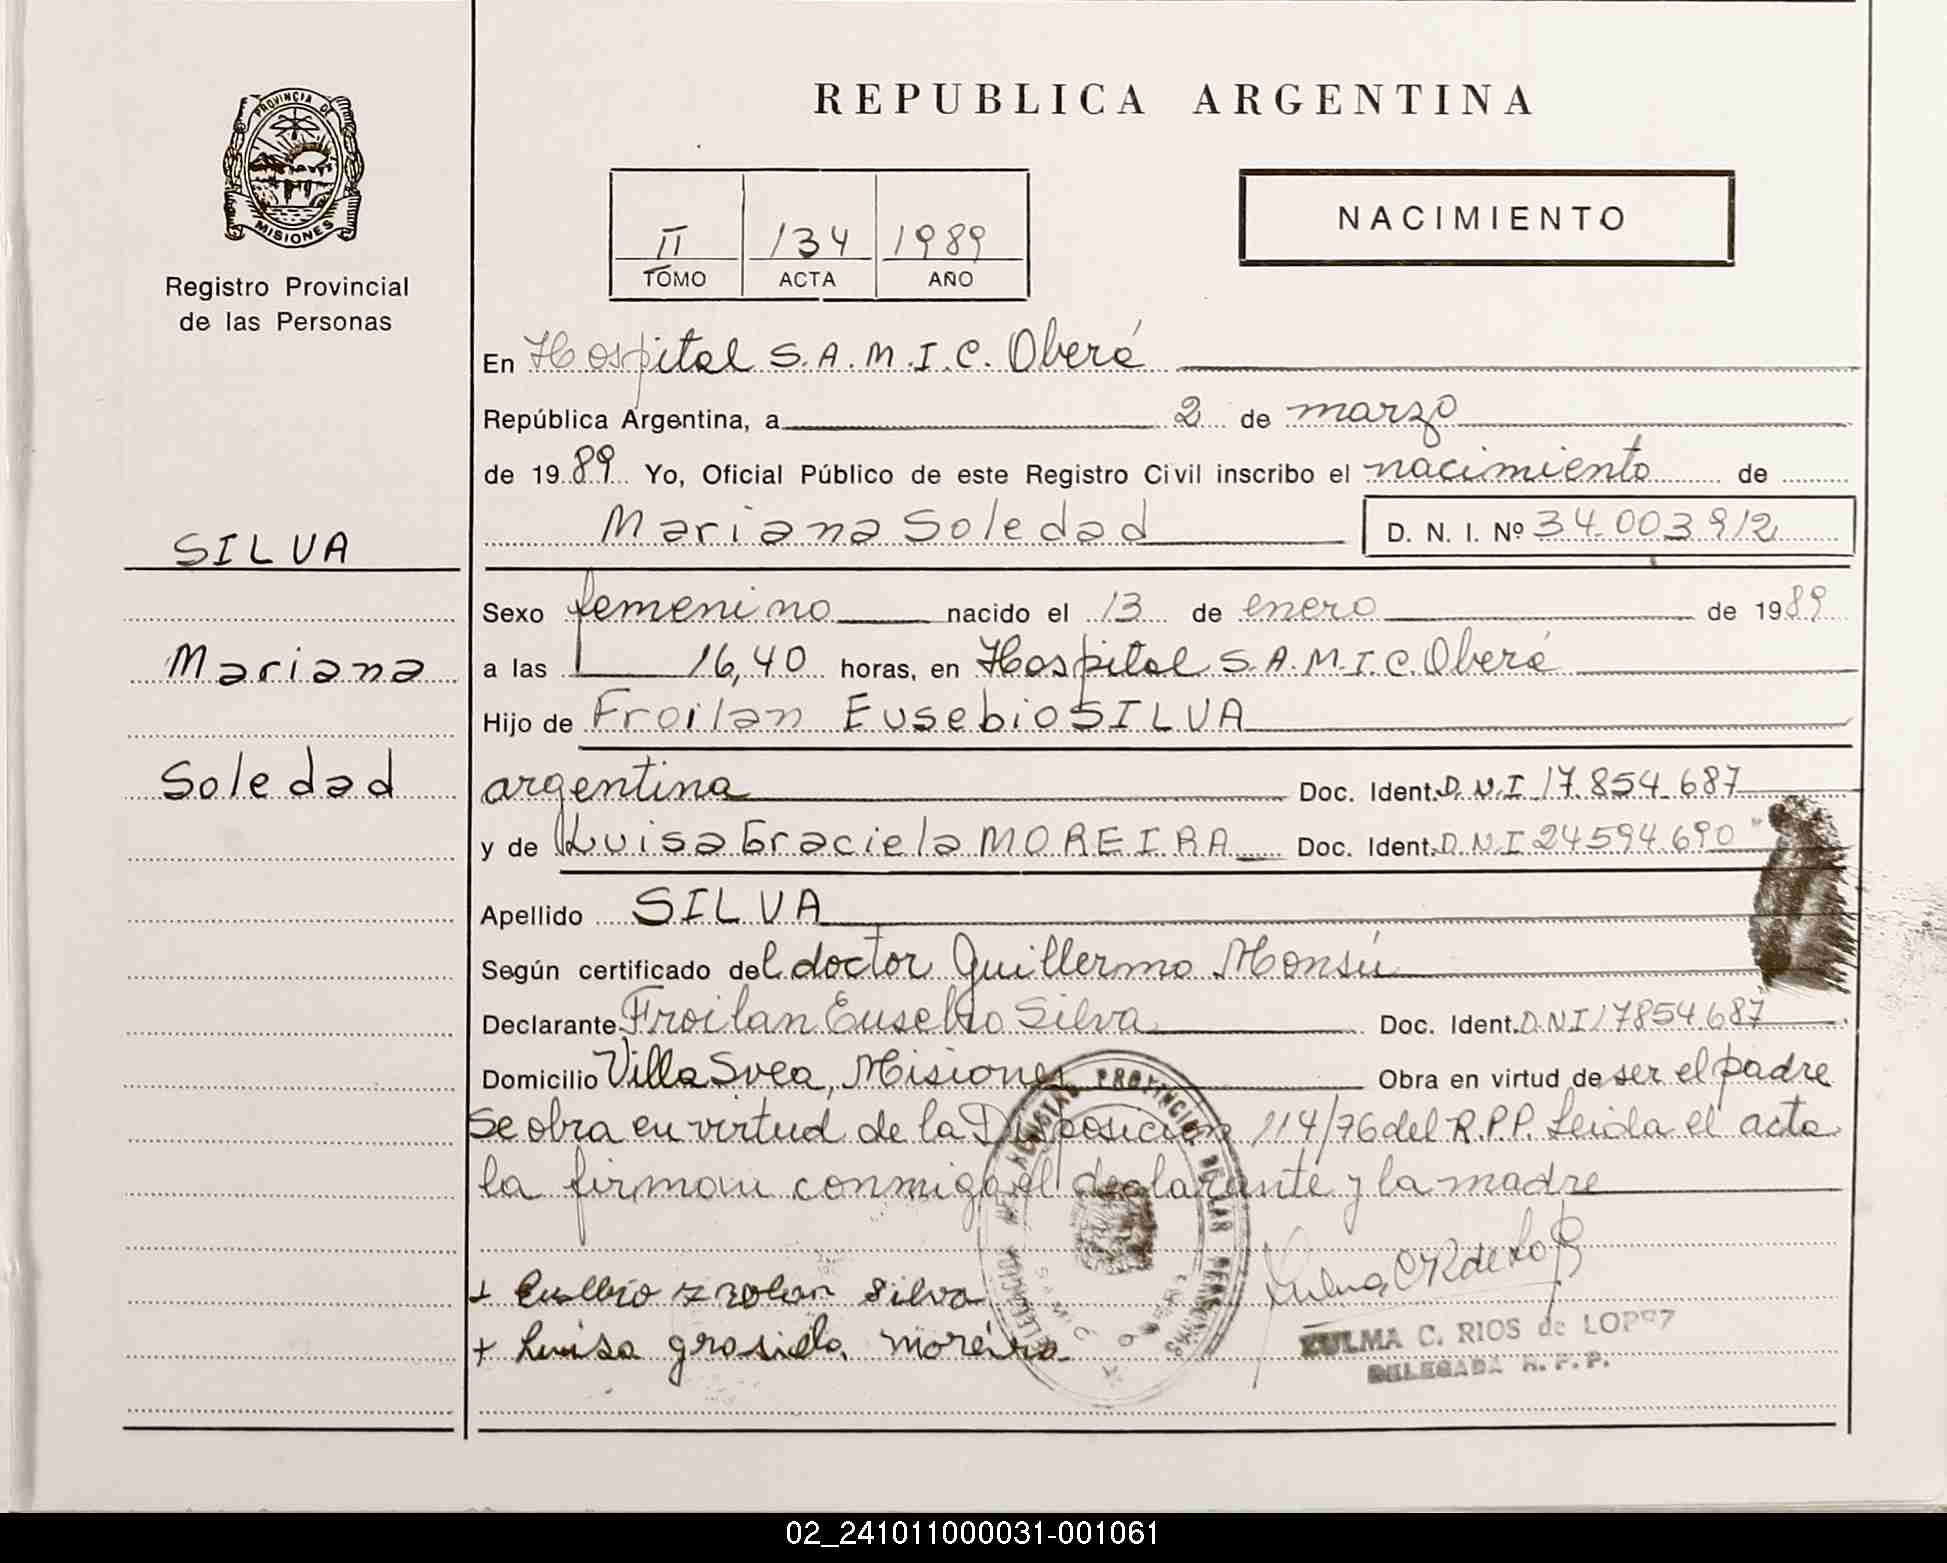 REPUBLICA ARGENTINA
PROVINCIA DE
MISIONES
Registro Provincial
de las Personas
II 134 1989
TOMO ACTA AÑO
NACIMIENTO
En Hospital S.A.M.I.C. Oberá
República Argentina, a 2 de marzo
de 1989 Yo, Oficial Público de este Registro Civil inscribo el nacimiento de
Mariana Soledad D. N. I. Nº 34.003.912
SILVA
Mariana
Soledad
Sexo femenino nacido el 13 de enero de 1989
a las 16,40 horas, en Hospital S.A.M.I.C. Oberá
Hijo de Froilan Eusebio SILVA
argentina Doc. Ident. D.N.I 17.854.687
y de Luisa Graciela MOREIRA Doc. Ident. D.N.I 24594.690
Apellido SILVA
Según certificado del doctor Guillermo Monsú
Declarante Froilan Eusebio Silva Doc. Ident. D.N.I 17854.687
Domicilio Villa Svea, Misiones Obra en virtud de ser el padre
Se obra en virtud de la Disposición 114/76 del R.P.P. Leida el acta
la firman conmigo el declarante y la madre
+ Eusebio Silva
+ Luisa grasiela moreira
ZULMA C. RIOS de LOPEZ
DELEGADA R.P.P.
02_241011000031-001061